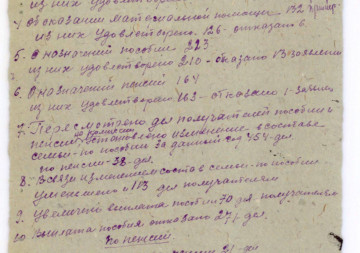 из них удовлетворено
4 Об оказании Материальной помощи 132
из них Удовлетворено 126. отказать в
5. О назначении пособие 223
из них удовлетворено 210 - отказано 13 заявлен
6. О назначении пенсий 164
из них удовлетворено 163 - отказано 1 -
7. Пересмотрено дел получателей пособий и
пенсий установлено изменение в составе
семьи - по пособию за данный год 454-дел.
по пенсии - 38-дел.
8. Всвязи изменением состава семьи - пособия
уменьшены 113 дел получателям
9. Увеличено выплата пособия 70 дел получателям
10. Выплата пособия отказано 274 дел.
По пенсий